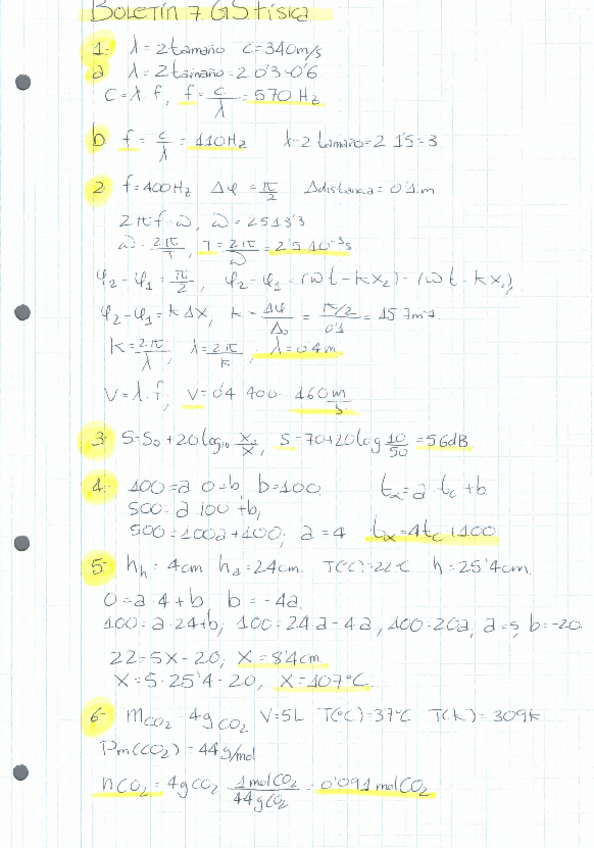 Boletín 7 GS física
1- λ = 2 tamaño c = 340 m/s
a λ = 2 tamaño = 2 0'3 = 0'6
C = λ · f, f = c/λ = 570 Hz
b f = c/λ = 110 Hz λ = 2 tamaño = 2 1'5 = 3
2 f = 400 Hz Δφ = π/2 Δdistancia = 0'1 m
2πf = ω, ω = 2513'3
ω = 2π/T, T = 2π/ω = 2'5 10⁻³ s
φ₂ - φ₁ = π/2, φ₂ - φ₁ = (ωt - kx₂) - (ωt - kx₁),
φ₂ - φ₁ = k Δx, k = Δφ/Δx = π/2/0'1 = 15'7 m⁻¹
k = 2π/λ, λ = 2π/k, λ = 0'4 m
V = λ · f, V = 0'4 400 = 160 m/s
3- S = S₀ + 20 log₁₀ x₀/x, S = 70 + 20 log 10/50 = 56 dB
4- 100 = a 0 + b, b = 100 tx = a · tc + b
500 = a 100 + b,
500 = 100a + 100; a = 4 tx = 4tc + 100
5- hh = 4 cm ha = 24 cm. T(ºC) = 22 ºC h = 25'4 cm
0 = a · 4 + b, b = -4a
100 = a · 24 + b; 100 = 24a - 4a, 100 = 20a, a = 5, b = -20
22 = 5x - 20; x = 8'4 cm
x = 5 · 25'4 - 20, x = 107 ºC
6- mCO₂ = 4 g CO₂ V = 5L T(ºC) = 37 ºC T(k) = 309 k
Pm(CO₂) = 44 g/mol
nCO₂ = 4 g CO₂ 1 mol CO₂/44 g CO₂ = 0'091 mol CO₂